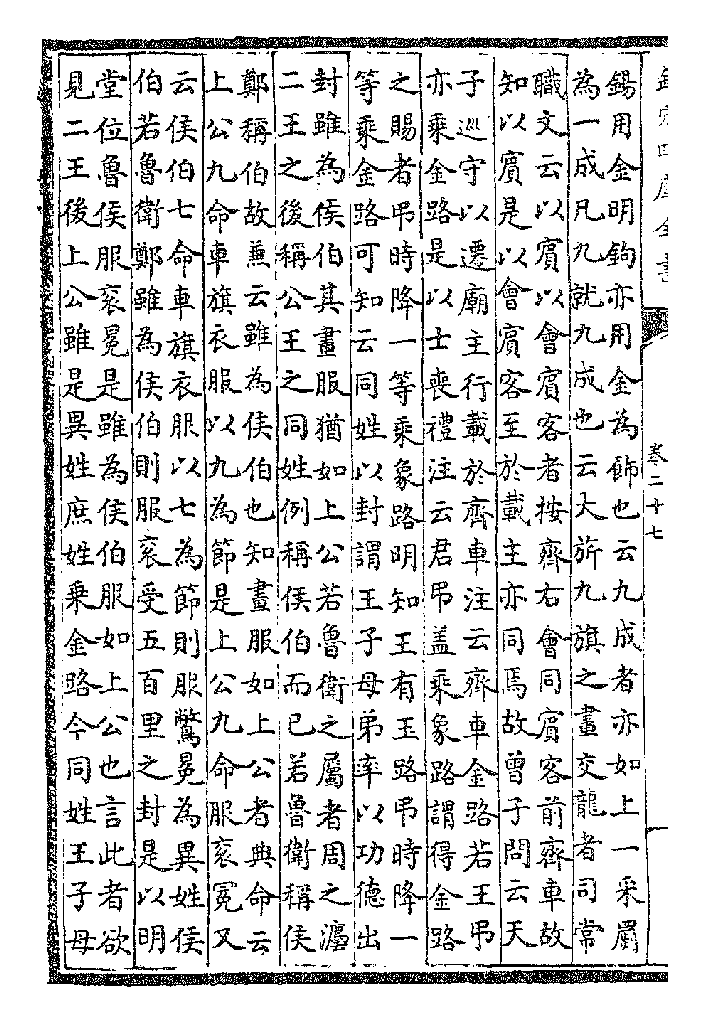 欽定四庫全書
卷二十七
鍚用金明鉤亦用金為飾也云九成者亦如上一采罽
為一成凡九就九成也云大旂九旗之畫交龍者司常
職文云以賓以會賓客者按齊右會同賓客前齊車故
知以賓是以會賓客至於載主亦同焉故曾子問云天
子巡守以遷廟主行載於齊車注云齊車金路若王弔
亦乘金路是以士喪禮注云君弔盖乘象路謂得金路
之賜者弔時降一等乘象路明知王有玉路弔時降一
等乘金路可知云同姓以封謂王子母弟率以功德出
封雖為侯伯其畫服猶如上公若魯衛之屬者周之灋
二王之後稱公王之同姓例稱侯伯而已若魯衛稱侯
鄭稱伯故兼云雖為侯伯也知畫服如上公者典命云
上公九命車旗衣服以九為節是上公九命服衮冕又
云侯伯七命車旗衣服以七為節則服鷩冕為異姓侯
伯若魯衛鄭雖為侯伯則服衮受五百里之封是以明
堂位魯侯服衮冕是雖為侯伯服如上公也言此者欲
見二王後上公雖是異姓庶姓乘金路今同姓王子母